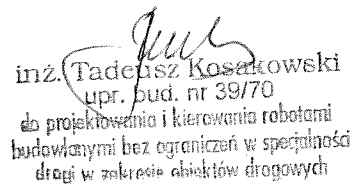 inż. Tadeusz Kosakowski
upr. bud. nr 39/70
do projektowania i kierowania robotami
budowlanymi bez ograniczeń w specjalności
drogi w zakresie obiektów drogowych